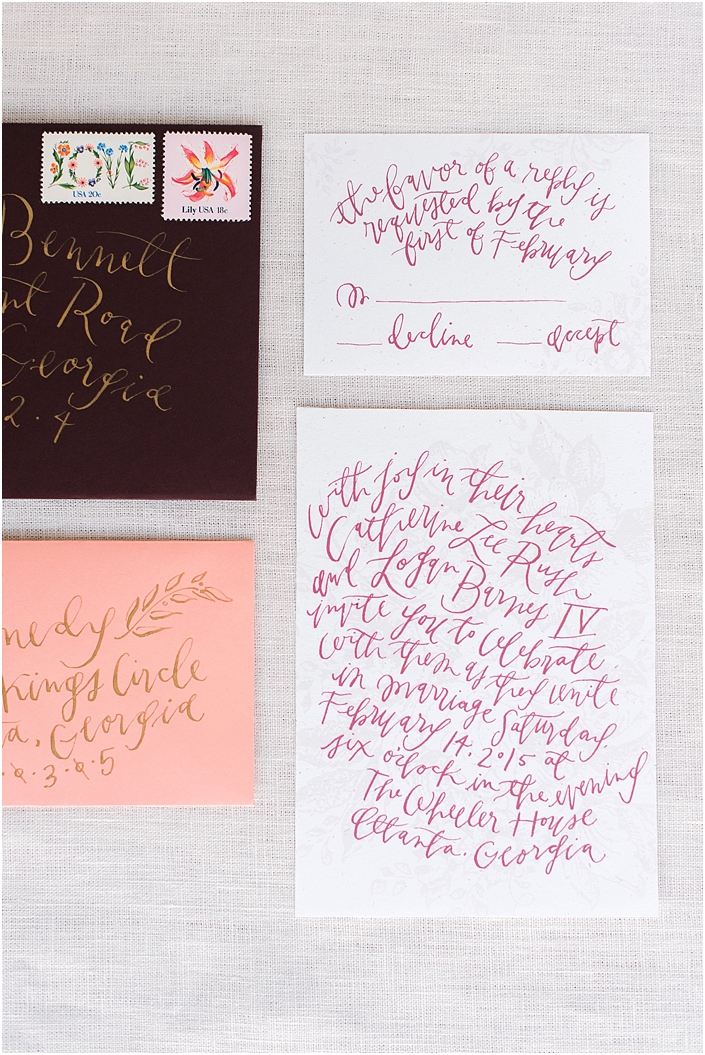 LOVE
USA 20c
Lily USA 18c
Bennett
Road
Georgia
2.4
the favor of a reply is
requested by the
first of February
M
decline accept
with joy in their hearts
Catherine Lee Rush
and Logan Barnes IV
invite you to celebrate
with them as they unite
in marriage Saturday,
February 14, 2015 at
six o'clock in the evening
The Wheeler House
Atlanta, Georgia
nedy
Kings Circle
ta, Georgia
3.5